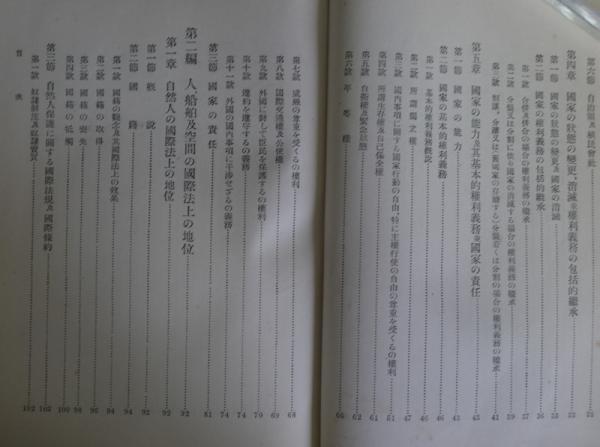 第六節 自治領及植民會社
第四章 國家の狀態の變更、消滅並權利義務の包括的繼承
第一節 國家の狀態の變更及國家の消滅
第二節 國家の權利義務の包括的繼承
第一款 合倂及倂合の場合の權利義務の繼承 37
第二款 分裂又は分割に依る國家の消滅する場合の權利義務の繼承 39
第三款 割讓、分離又は(舊國家の存續する)分裂若くは分割の場合の權利義務の繼承 41
第五章 國家の能力及其基本的權利義務並國家の責任 45
第一節 國家の能力 45
第二節 國家の基本的權利義務 46
第一款 基本的權利義務槪說 46
第二款 所謂獨立權 47
第三款 國內事項に關する國家行動の自由、特に主權行使の自由の尊重を受くるの權利
第四款 所謂生存權及自己保全權 51
第五款 自衞權及緊急狀態 62
第六款 平等權 66
第七款 威嚴の尊重を受くるの權利 68
第八款 國際交通權及公使權 69
第九款 外國に對して臣民を保護するの權利 70
第十款 違約を遵守するの義務 74
第十一款 外國の國內事項に干涉せざるの義務 74
第三節 國家の責任 81
第二編 人、船舶及空間の國際法上の地位 92
第一章 自然人の國際法上の地位 92
第一節 槪說 92
第二節 國籍 94
第一款 國籍の觀念及其國際法上の效果 94
第二款 國籍の取得
第三款 國籍の喪失 98
第四款 國籍の牴觸 100
第三節 自然人保護に關する國際法規及國際條約 102
第一款 奴隸制度及奴隸賣買 102
目次